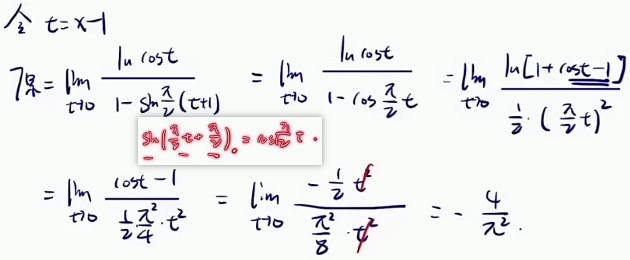 令 t=x-1
原=lim_{t→0} \frac{ln cost}{1-sin\frac{π}{2}(t+1)} = lim_{t→0} \frac{ln cost}{1-cos\frac{π}{2}t} =lim_{t→0} \frac{ln[1+cost-1]}{\frac{1}{2}·(\frac{π}{2}t)^2}
sin(\frac{π}{2}t+\frac{π}{2})。=cos\frac{π}{2}t.
=lim_{t→0} \frac{cost-1}{\frac{1}{2}\frac{π^2}{4}·t^2} = lim_{t→0} \frac{-\frac{1}{2}t^2}{\frac{π^2}{8}·t^2} =-\frac{4}{π^2}.